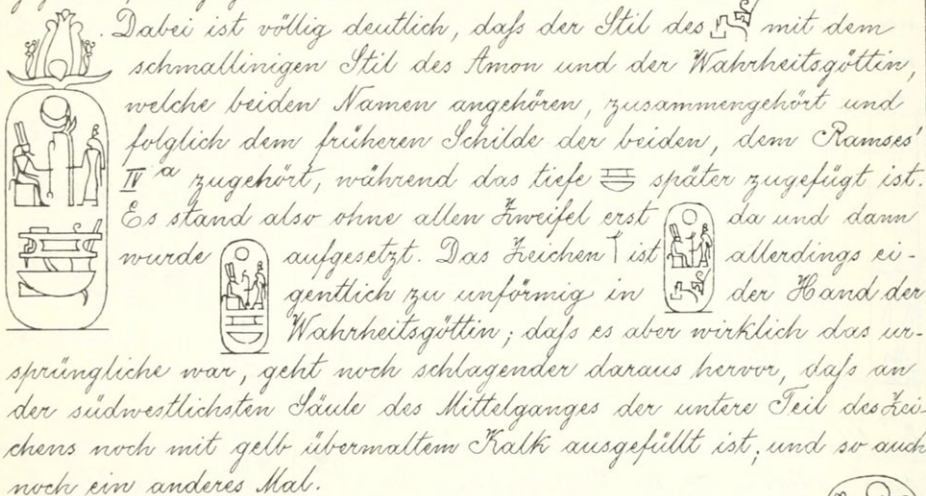 Dabei ist völlig deutlich, daſs der Stil des mit dem
schmallinigen Stil des Amon und der Wahrheitsgöttin,
welche beiden Namen angehören, zusammengehört und
folglich dem früheren Schilde der beiden, dem Ramses'
IV a zugehört, während das tiefe später zugefügt ist.
Es stand also ohne allen Zweifel erst da und dann
wurde aufgesetzt. Das Zeichen ist allerdings ei-
gentlich zu unförmig in der Hand der
Wahrheitsgöttin; daſs es aber wirklich das ur-
sprüngliche war, geht noch schlagender daraus hervor, daſs an
der südwestlichsten Säule des Mittelganges der untere Teil des Zei-
chens noch mit gelb übermaltem Kalk ausgefüllt ist, und so auch
noch ein anderes Mal.